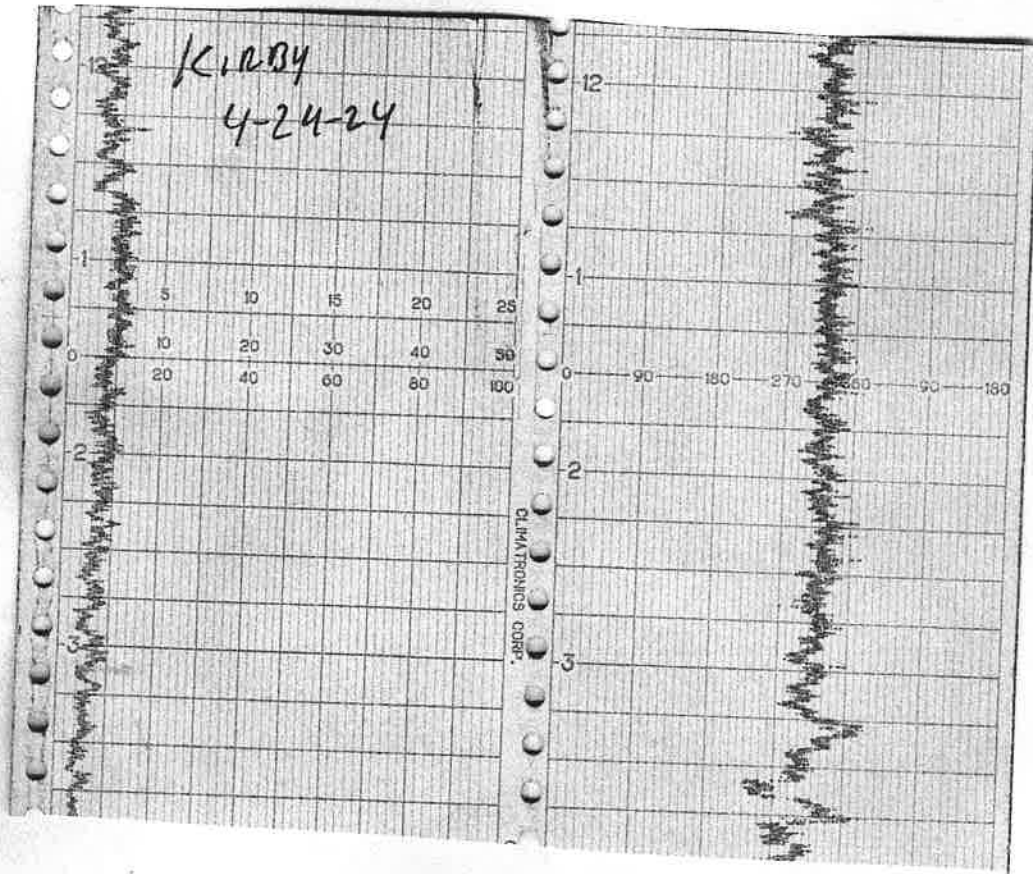 KIRBY
4-24-24
12
1
5 10 15 20 25
0 10 20 30 40 50
20 40 60 80 100
2
CLIMATRONICS CORP.
3
12
1
0 90 180 270 360 90 180
2
3